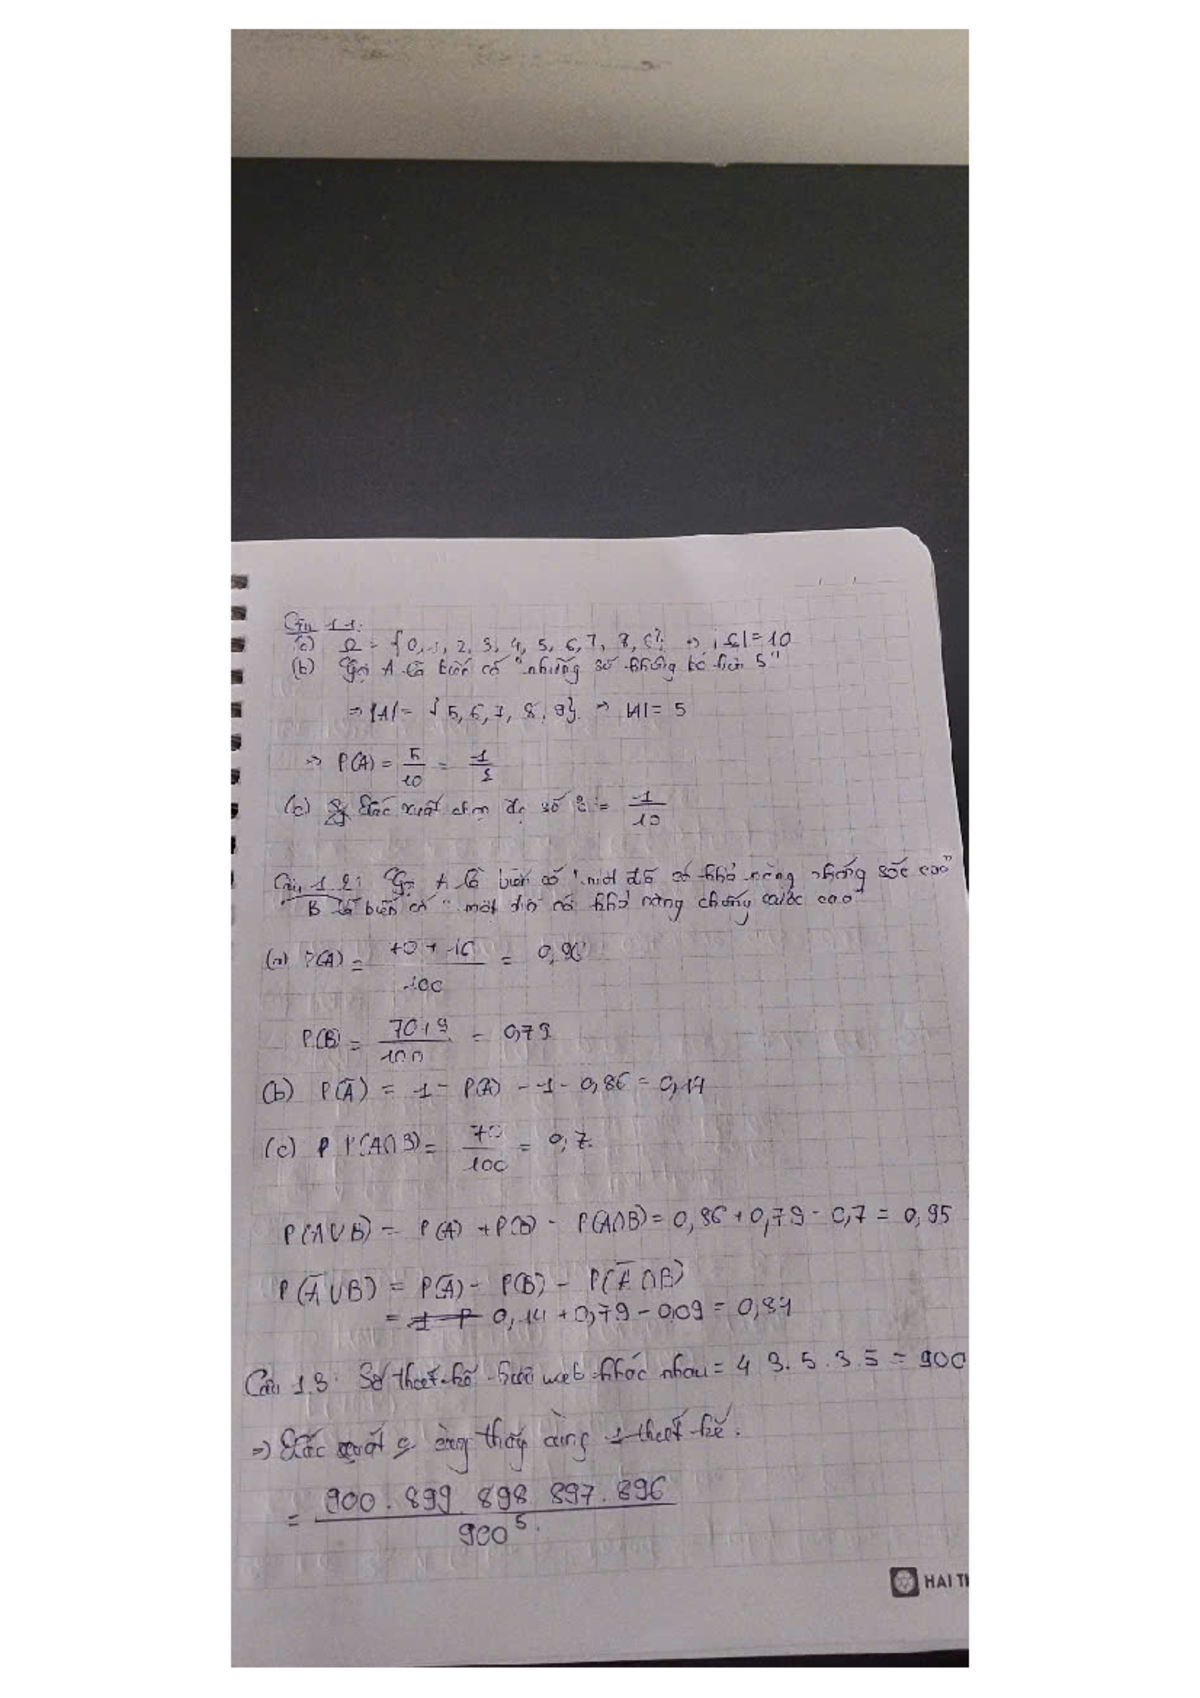 Câu 1.1:
(a) Ω = {0, 1, 2, 3, 4, 5, 6, 7, 8, 9} => |Ω| = 10
(b) Gọi A là biến cố "những số không bé hơn 5"
=> |A| = {5, 6, 7, 8, 9} => |A| = 5
=> P(A) = 5/10 = 1/2
(c) Xác xuất chọn đc số = 1/10
Câu 1.2: Gọi A là biến cố "một đĩa có khả năng chống sốc cao"
B là biến cố "một đĩa có khả năng chống cao"
(a) P(A) = 70 + 16 / 100 = 0,86
P(B) = 70+9 / 100 = 0,79
(b) P(Ā) = 1 - P(A) = 1 - 0,86 = 0,14
(c) P P(A∩B) = 70/100 = 0,7.
P(A∪B) = P(A) + P(B) - P(A∩B) = 0,86 + 0,79 - 0,7 = 0,95
P(Ā∪B) = P(Ā) - P(B) - P(Ā∩B)
= 0,14 + 0,79 - 0,09 = 0,84
Câu 1.3: Số thiết kế web khác nhau = 4.3.5.3.5 = 900
=> Xác xuất thấy cùng 1 thiết kế.
= 900 . 899 . 898 . 897 . 896 / 900⁵.
HAI T